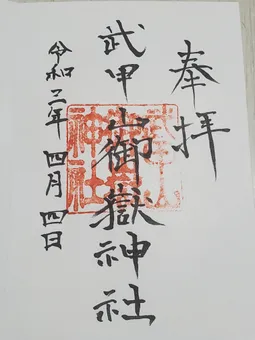 奉拝
武甲山御嶽神社
令和二年四月四日